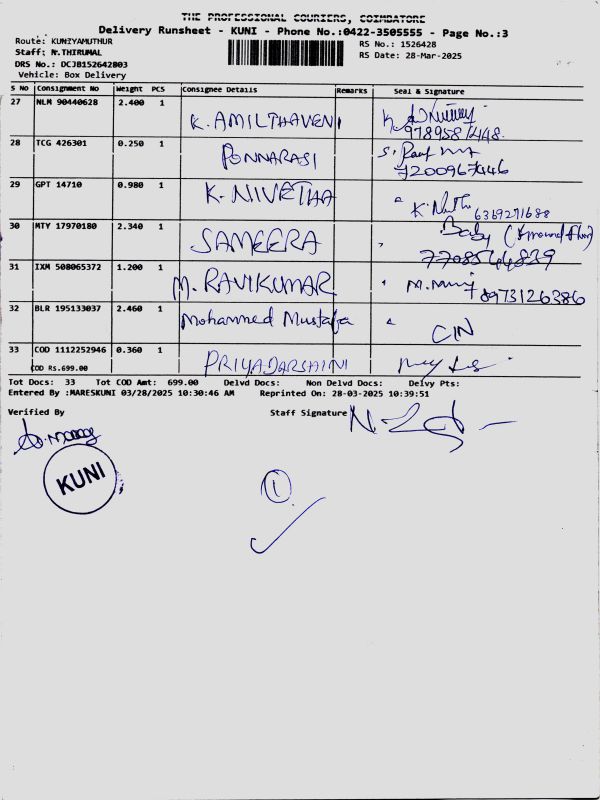 THE PROFESSIONAL COURIERS, COIMBATORE
Delivery Runsheet - KUNI - Phone No.:0422-3505555 - Page No.:3
Route: KUNIYAMUTHUR
Staff: N.THIRUMAL
DRS No.: DCJB152642803
Vehicle: Box Delivery
RS No.: 1526428
RS Date: 28-Mar-2025
S No Consignment No Weight PCS Consignee Details Remarks Seal & Signature
27 NLM 90440628 2.400 1 K. AMILTHAVENI
9789587448
28 TCG 426301 0.250 1 PONNARASI
7200967446
29 GPT 14710 0.980 1 K. NIVETHA
6369271688
30 MTY 17970180 2.340 1 SAMEERA Baby
7708544839
31 IXM 508065372 1.200 1 M. RAVIKUMAR
8973126386
32 BLR 195133037 2.460 1 Mohammed Mustafa CIN
33 COD 1112252946 0.360 1 PRIYADARSHINI
COD RS.699.00
Tot Docs: 33 Tot COD Amt: 699.00 Delvd Docs: Non Delvd Docs: Delvy Pts:
Entered By :MARESKUNI 03/28/2025 10:30:46 AM Reprinted On: 28-03-2025 10:39:51
Verified By Staff Signature
KUNI
1